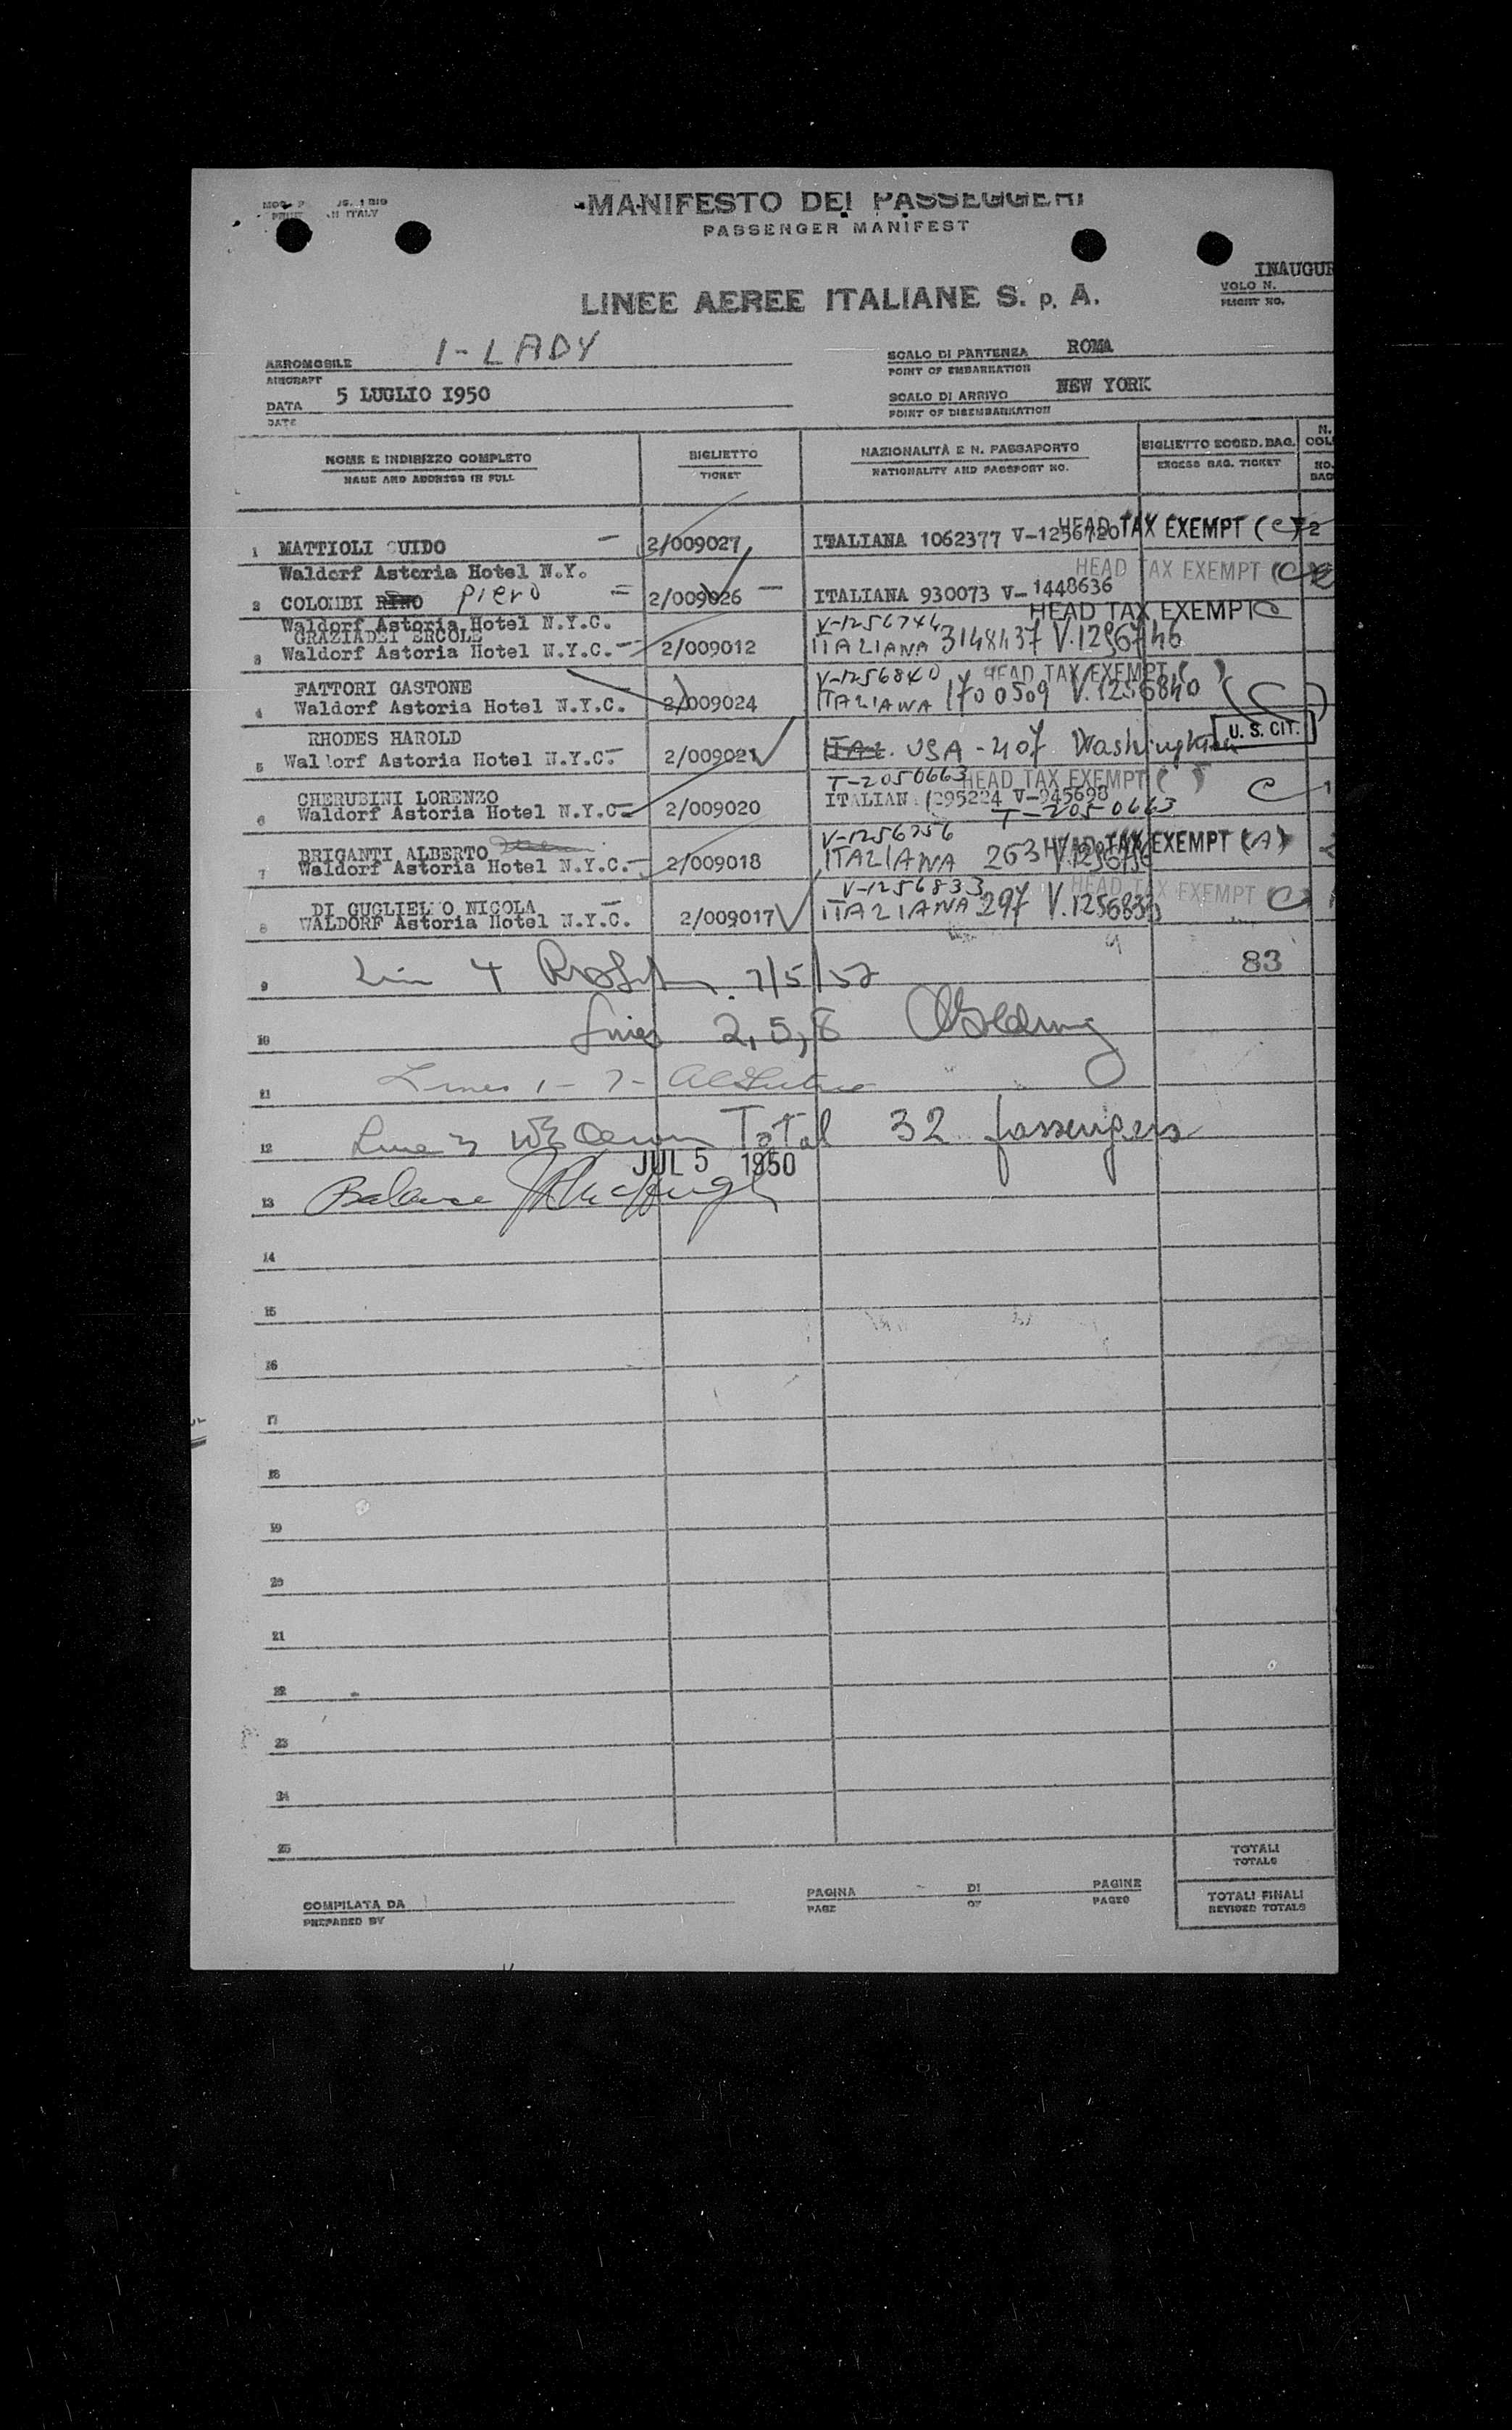 MANIFESTO DEI PASSEGGERI
PASSENGER MANIFEST
INAUGUR
VOLO N.
FLIGHT NO.
LINEE AEREE ITALIANE S. p. A.
AEROMOBILE I-LADY
AIRCRAFT
SCALO DI PARTENZA ROMA
POINT OF EMBARKATION
DATA 5 LUGLIO 1950
DATE
SCALO DI ARRIVO NEW YORK
POINT OF DISEMBARKATION
NOME E INDIRIZZO COMPLETO
NAME AND ADDRESS IN FULL
BIGLIETTO
TICKET
NAZIONALITÀ E N. PASSAPORTO
NATIONALITY AND PASSPORT NO.
BIGLIETTO ECCED. BAG.
EXCESS BAG. TICKET
N.
COL
NO.
BAG
1 MATTIOLI GUIDO — 2/009027 ITALIANA 1062377 V-1256720 HEAD TAX EXEMPT (C) 2
Waldorf Astoria Hotel N.Y. HEAD TAX EXEMPT (C
2 COLOMBI RINO Piero = 2/009026 — ITALIANA 930073 V-1448636
Waldorf Astoria Hotel N.Y.C. HEAD TAX EXEMPT C
GRAZIADEI ERCOLE V-1256746
3 Waldorf Astoria Hotel N.Y.C. 2/009012 ITALIANA 3148437 V.1256746
FATTORI GASTONE V-1256840 HEAD TAX EXEMPT ( )
4 Waldorf Astoria Hotel N.Y.C. 2/009024 ITALIANA 1700509 V.1256840
RHODES HAROLD U. S. CIT.
5 Waldorf Astoria Hotel N.Y.C. 2/009021 ITAL. USA - 407 Washington
T-2050663 HEAD TAX EXEMPT (
CHERUBINI LORENZO ITALIANA 1295224 V-945698 C 1
6 Waldorf Astoria Hotel N.Y.C. 2/009020 T-2050663
BRIGANTI ALBERTO V-1256756 HEAD TAX EXEMPT (A)
7 Waldorf Astoria Hotel N.Y.C. 2/009018 ITALIANA 263 V.1256756
DI GUGLIELMO NICOLA V-1256833 HEAD TAX EXEMPT C
8 WALDORF Astoria Hotel N.Y.C. 2/009017 ITALIANA 297 V.1256833
83
9 Lin 4 7/5/50
10 Lines 2, 5, 8 Golding
11 Lines 1 - 7 -
12 Line 3 Total 32 passengers
JUL 5 1950
13 Balance
14
15
16
17
18
19
20
21
22
23
24
25
TOTALI
TOTALS
COMPILATA DA
PREPARED BY
PAGINA DI PAGINE
PAGE OF PAGES
TOTALI FINALI
REVISED TOTALS